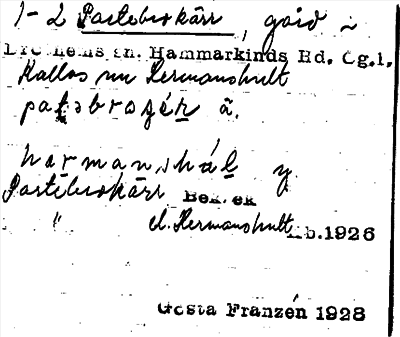 1-2 Pastebuskärr, gård i
Drothems sn. Hammarkinds Hd. Ög.l.
Kallas nu Hermanshult
patəbrozér ä.
harmanshál y.
Pastebuskärr Bek. ek
" el. Hermanshult Kb. 1926
Gösta Franzén 1928